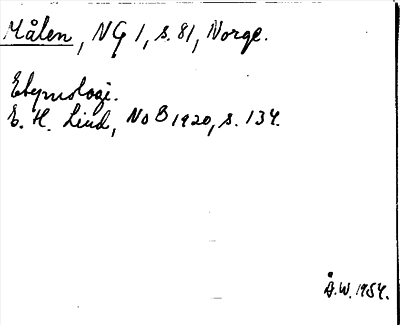 Målen, NG 1, s. 81, Norge.
Etymologi.
E. H. Lind, NoB 1920, s. 134.
Å.W. 1954.